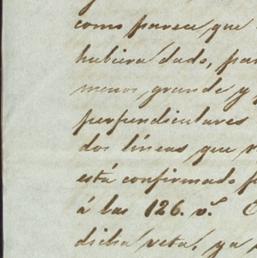 como parece que
hubiera dado, par
menos grande y y
perpendiculares
dos líneas que
está confirmado p
á las 126. v.ª C
dicha veta, ya